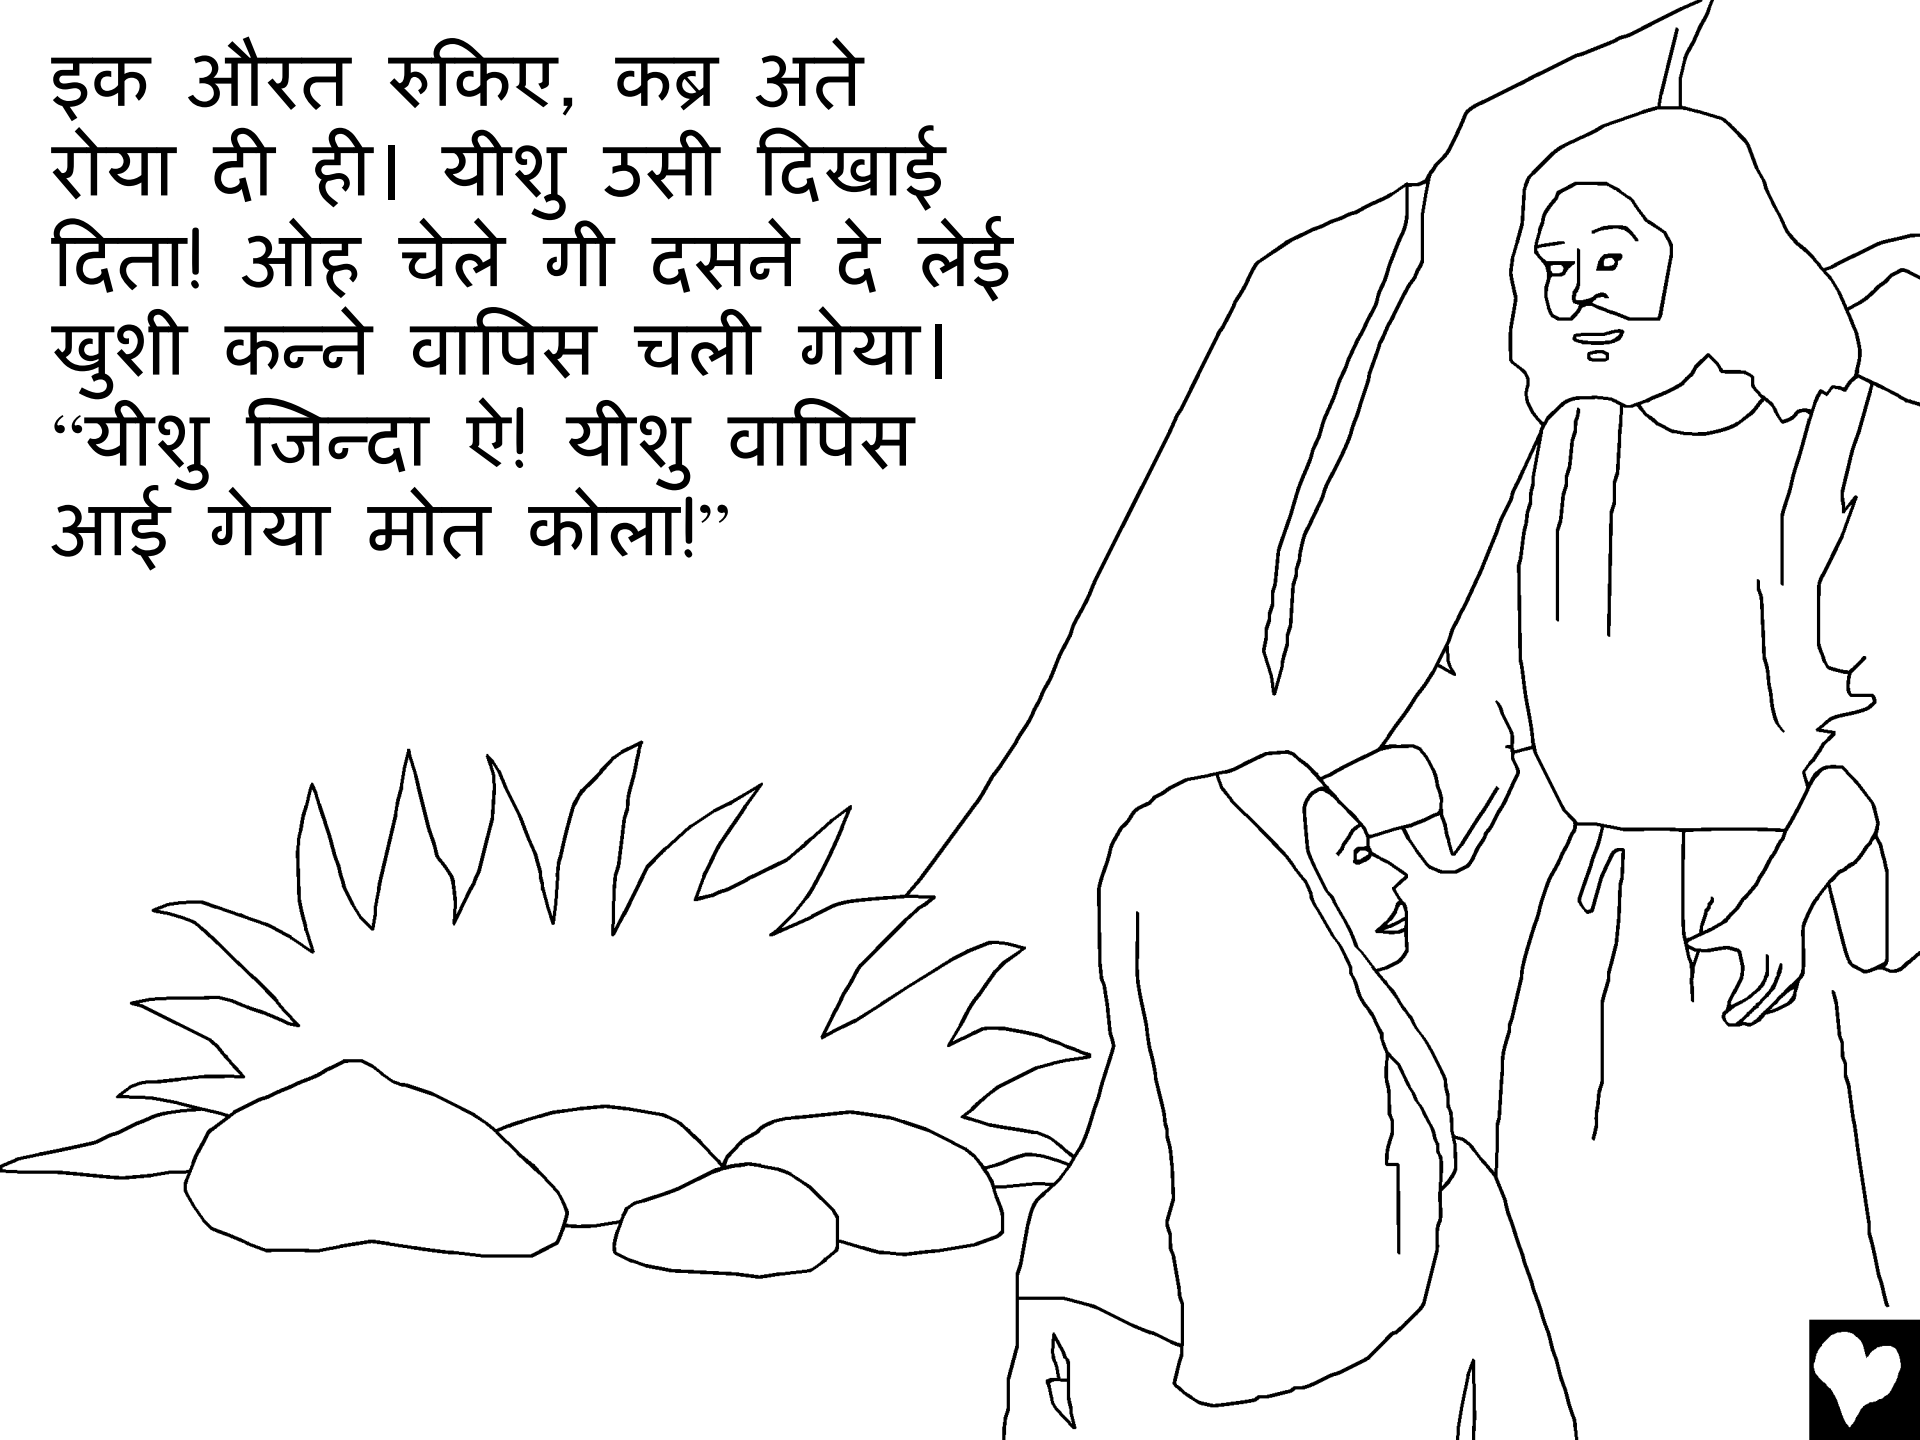 इक औरत रुकिए, कब्र अते
रोया दी ही। यीशु उसी दिखाई
दिता! ओह चेले गी दसने दे लेई
खुशी कन्ने वापिस चली गेया।
“यीशु जिन्दा ऐ! यीशु वापिस
आई गेया मोत कोला!”